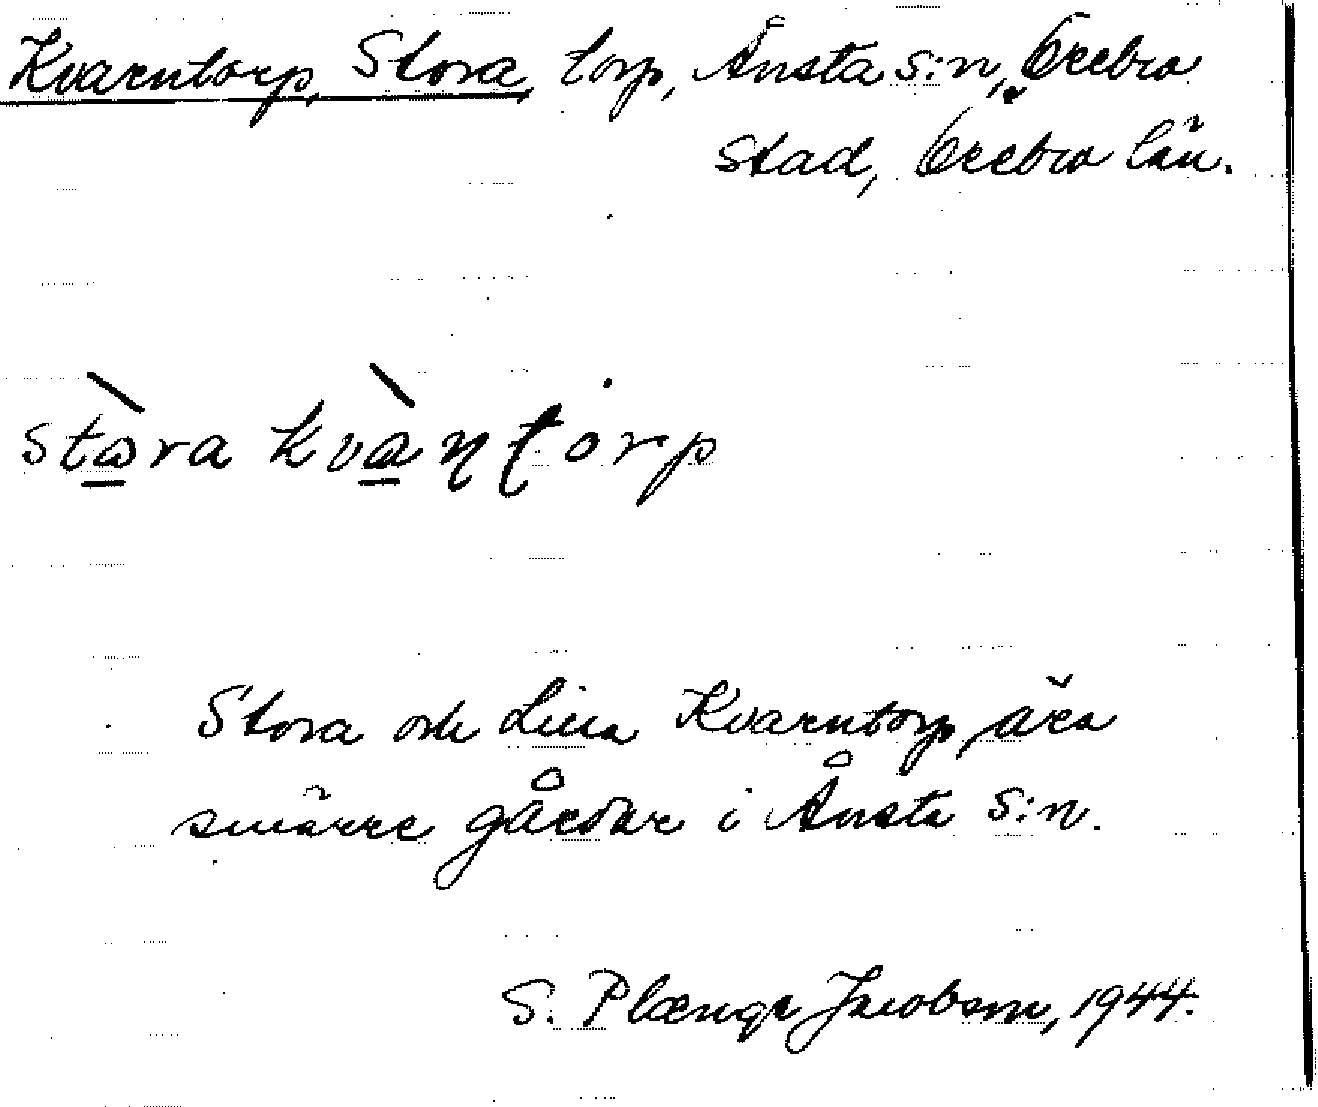 Kvarntorp, Stora, torp, Ånsta s:n, Örebro
stad, Örebro län.
stɷ̀ra kvàɳʈorp
Stora och Lilla Kvarntorp ära
smärre gårdar i Ånsta s:n.
S. Plænge Jacobson, 1944.